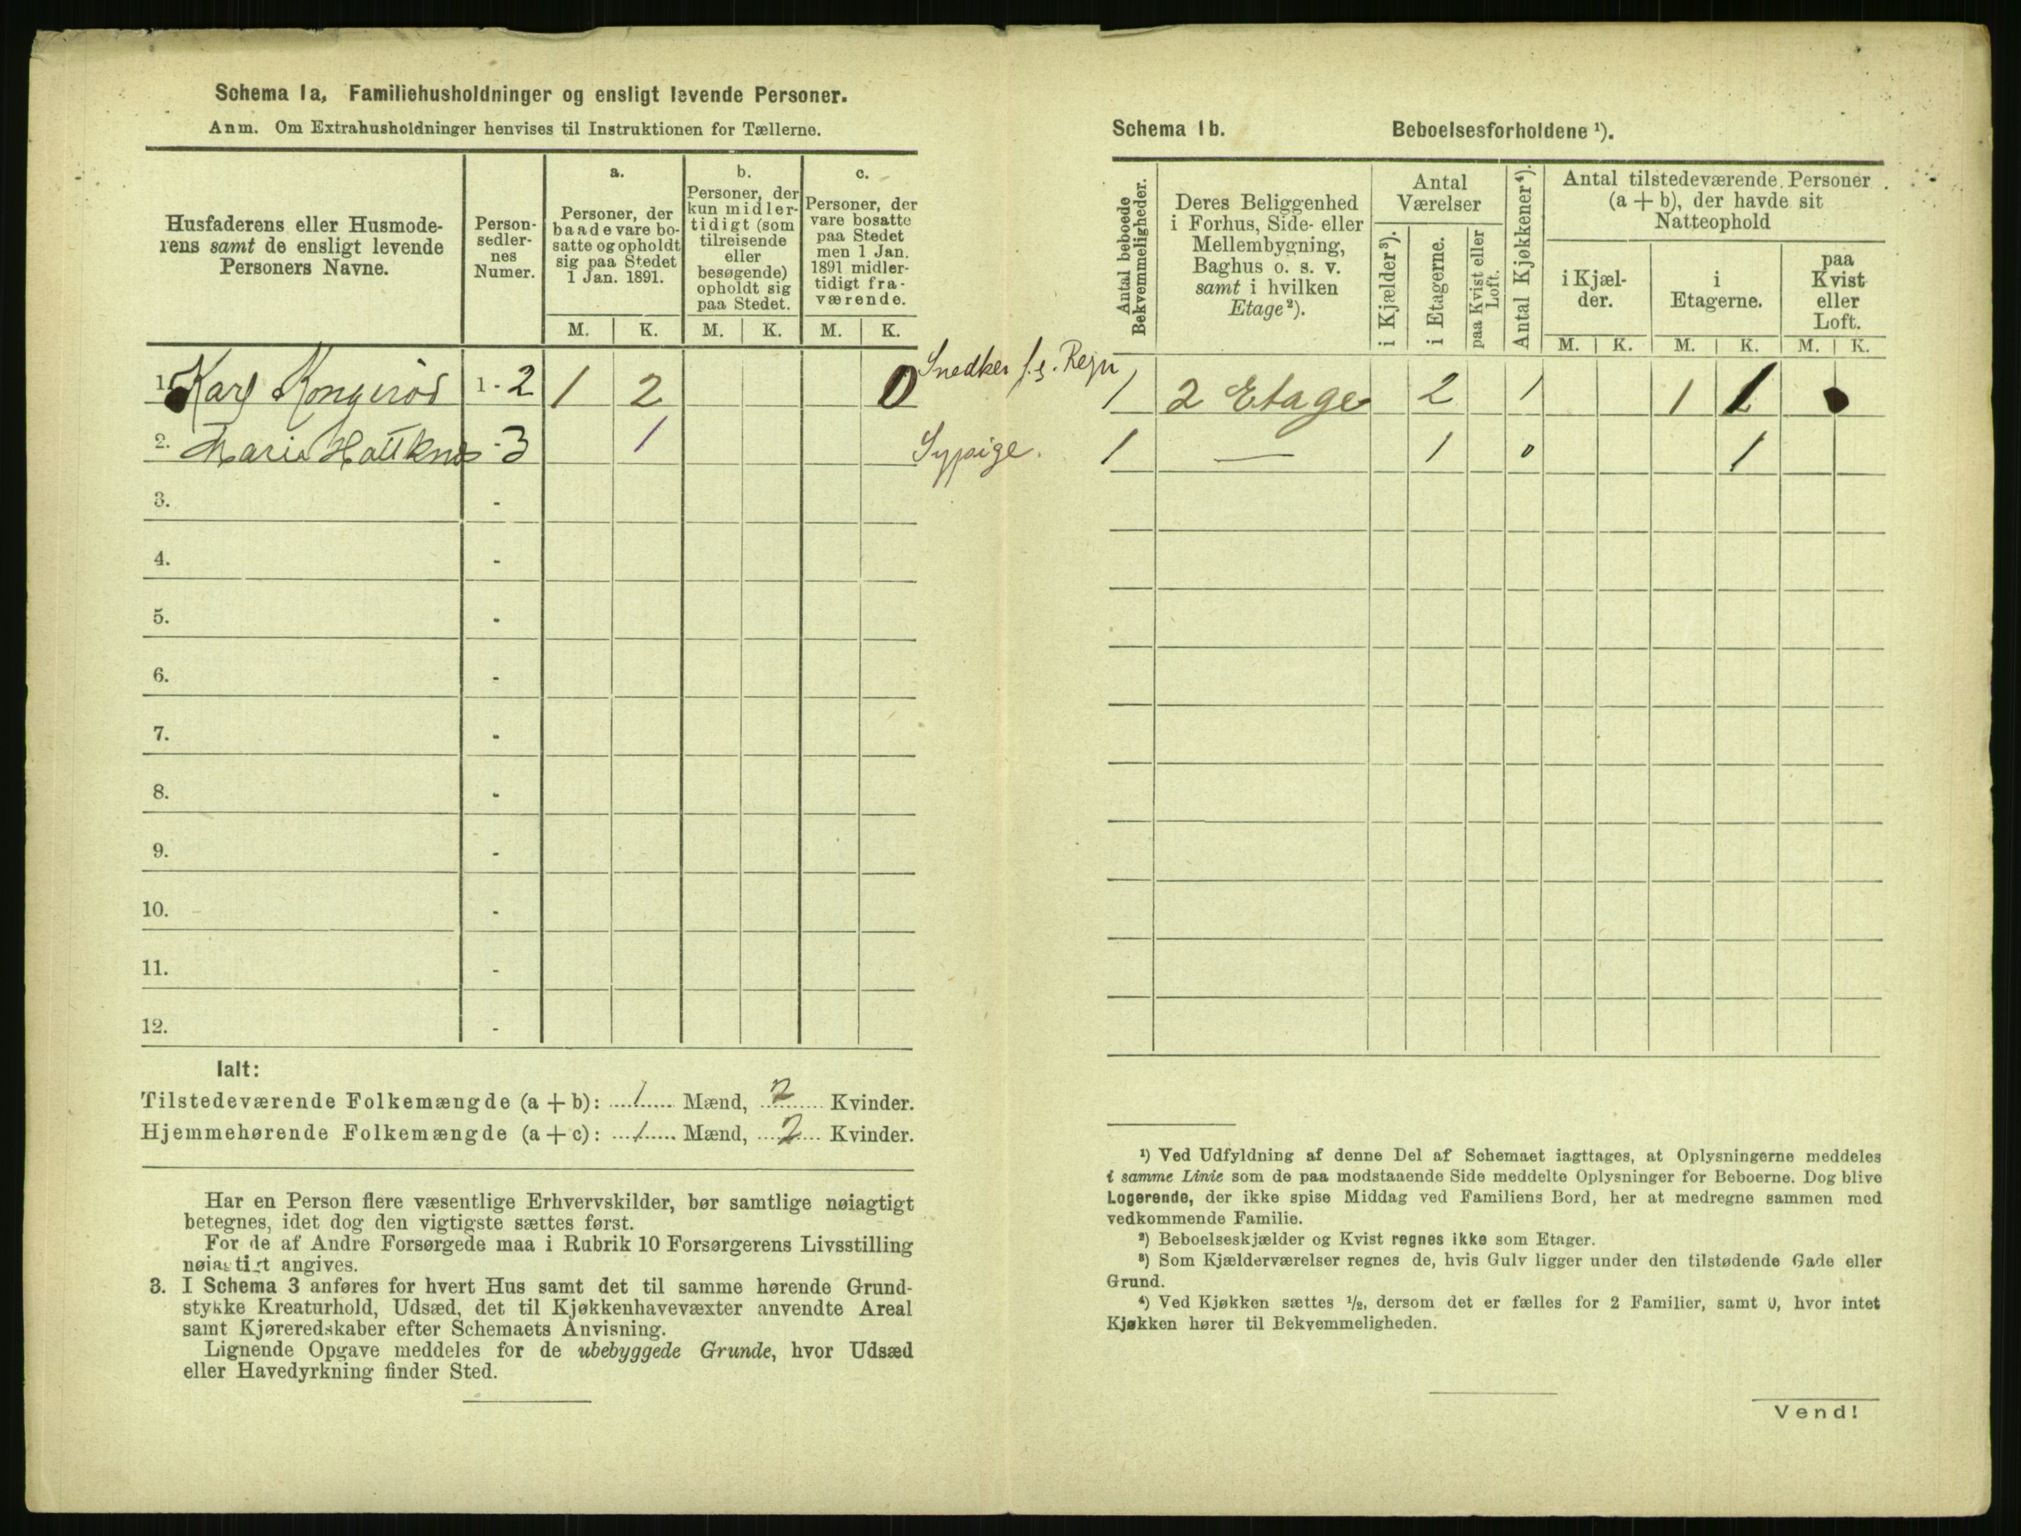 Schema 1a, Familiehusholdninger og ensligt levende Personer.
Anm. Om Extrahusholdninger henvises til Instruktionen for Tællerne.
Husfaderens eller Husmode-
rens samt de ensligt levende
Personers Navne.
Person-
sedler-
nes
Numer.
a.
Personer, der
baade vare bo-
satte og opholdt
sig paa Stedet
1 Jan. 1891.
b.
Personer, der
kun midler-
tidigt (som
tilreisende
eller
besøgende)
opholdt sig
paa Stedet.
c.
Personer, der
vare bosatte
paa Stedet
men 1 Jan.
1891 midler-
tidigt fra-
værende.
M. K. M. K. M. K.
1. Karl Kongerød 1 - 2 1 2 0 Snedker f. s. Regn
2. Marie - 3 1 Sypige.
3. -
4. -
5. -
6. -
7. -
8. -
9. -
10. -
11. -
12. -
Ialt:
Tilstedeværende Folkemængde (a + b): 1 Mænd, 2 Kvinder.
Hjemmehørende Folkemængde (a + c): 1 Mænd, 2 Kvinder.
Har en Person flere væsentlige Erhvervskilder, bør samtlige nøiagtigt
betegnes, idet dog den vigtigste sættes først.
For de af Andre Forsørgede maa i Rubrik 10 Forsørgerens Livsstilling
nøiagtigt angives.
3. I Schema 3 anføres for hvert Hus samt det til samme hørende Grund-
stykke Kreaturhold, Udsæd, det til Kjøkkenhavevæxter anvendte Areal
samt Kjøreredskaber efter Schemaets Anvisning.
Lignende Opgave meddeles for de ubebyggede Grunde, hvor Udsæd
eller Havedyrkning finder Sted.
Schema 1b. Beboelsesforholdene ¹).
Antal beboede
Bekvemmeligheder.
Deres Beliggenhed
i Forhus, Side- eller
Mellembygning,
Baghus o. s. v.
samt i hvilken
Etage²).
Antal
Værelser
i Kjælder³).
i Etagerne.
paa Kvist eller
Loft.
Antal Kjøkkener⁴).
Antal tilstedeværende Personer
(a + b), der havde sit
Natteophold
i Kjæl-
der.
i
Etagerne.
paa
Kvist
eller
Loft.
M. K. M. K. M. K.
1 2 Etage 2 1 1 1
1 — 1 0 1
¹) Ved Udfyldning af denne Del af Schemaet iagttages, at Oplysningerne meddeles
i samme Linie som de paa modstaaende Side meddelte Oplysninger for Beboerne. Dog blive
Logerende, der ikke spise Middag ved Familiens Bord, her at medregne sammen med
vedkommende Familie.
²) Beboelseskjælder og Kvist regnes ikke som Etager.
³) Som Kjælderværelser regnes de, hvis Gulv ligger under den tilstødende Gade eller
Grund.
⁴) Ved Kjøkken sættes ½, dersom det er fælles for 2 Familier, samt 0, hvor intet
Kjøkken hører til Bekvemmeligheden.
Vend!